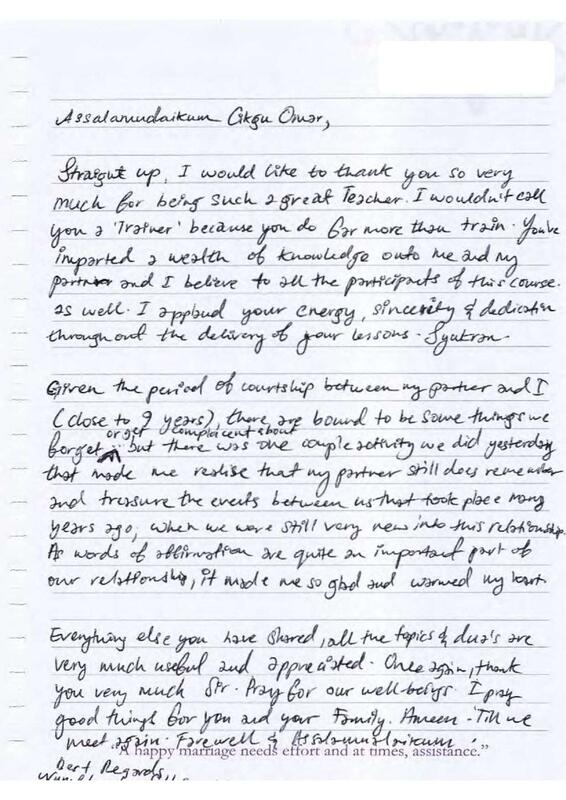 Assalamualaikum Cikgu Omar,
Straight up, I would like to thank you so very
much for being such a great Teacher. I wouldn't call
you a 'Trainer' because you do far more than train. You've
imparted a wealth of knowledge onto me and my
partner and I believe to all the participants of this course.
as well. I applaud your energy, sincerity & dedication
throughout the delivery of your lessons. Syukran.
Given the period of courtship between my partner and I
(close to 9 years), there are bound to be some things we
forget or get complacent about but there was one couple activity we did yesterday
that made me realise that my partner still does remember
and treasure the events between us that took place many
years ago, when we were still very new into this relationship.
As words of affirmation are quite an important part of
our relationship, it made me so glad and warmed my heart.
Everything else you have shared, all the topics & dua's are
very much useful and appreciated. Once again, thank
you very much Sir. Pray for our well-beings. I pray
good things for you and your Family. Ameen. Till we
meet again. Farewell & Assalamualaikum.
"A happy marriage needs effort and at times, assistance."
Best Regards,